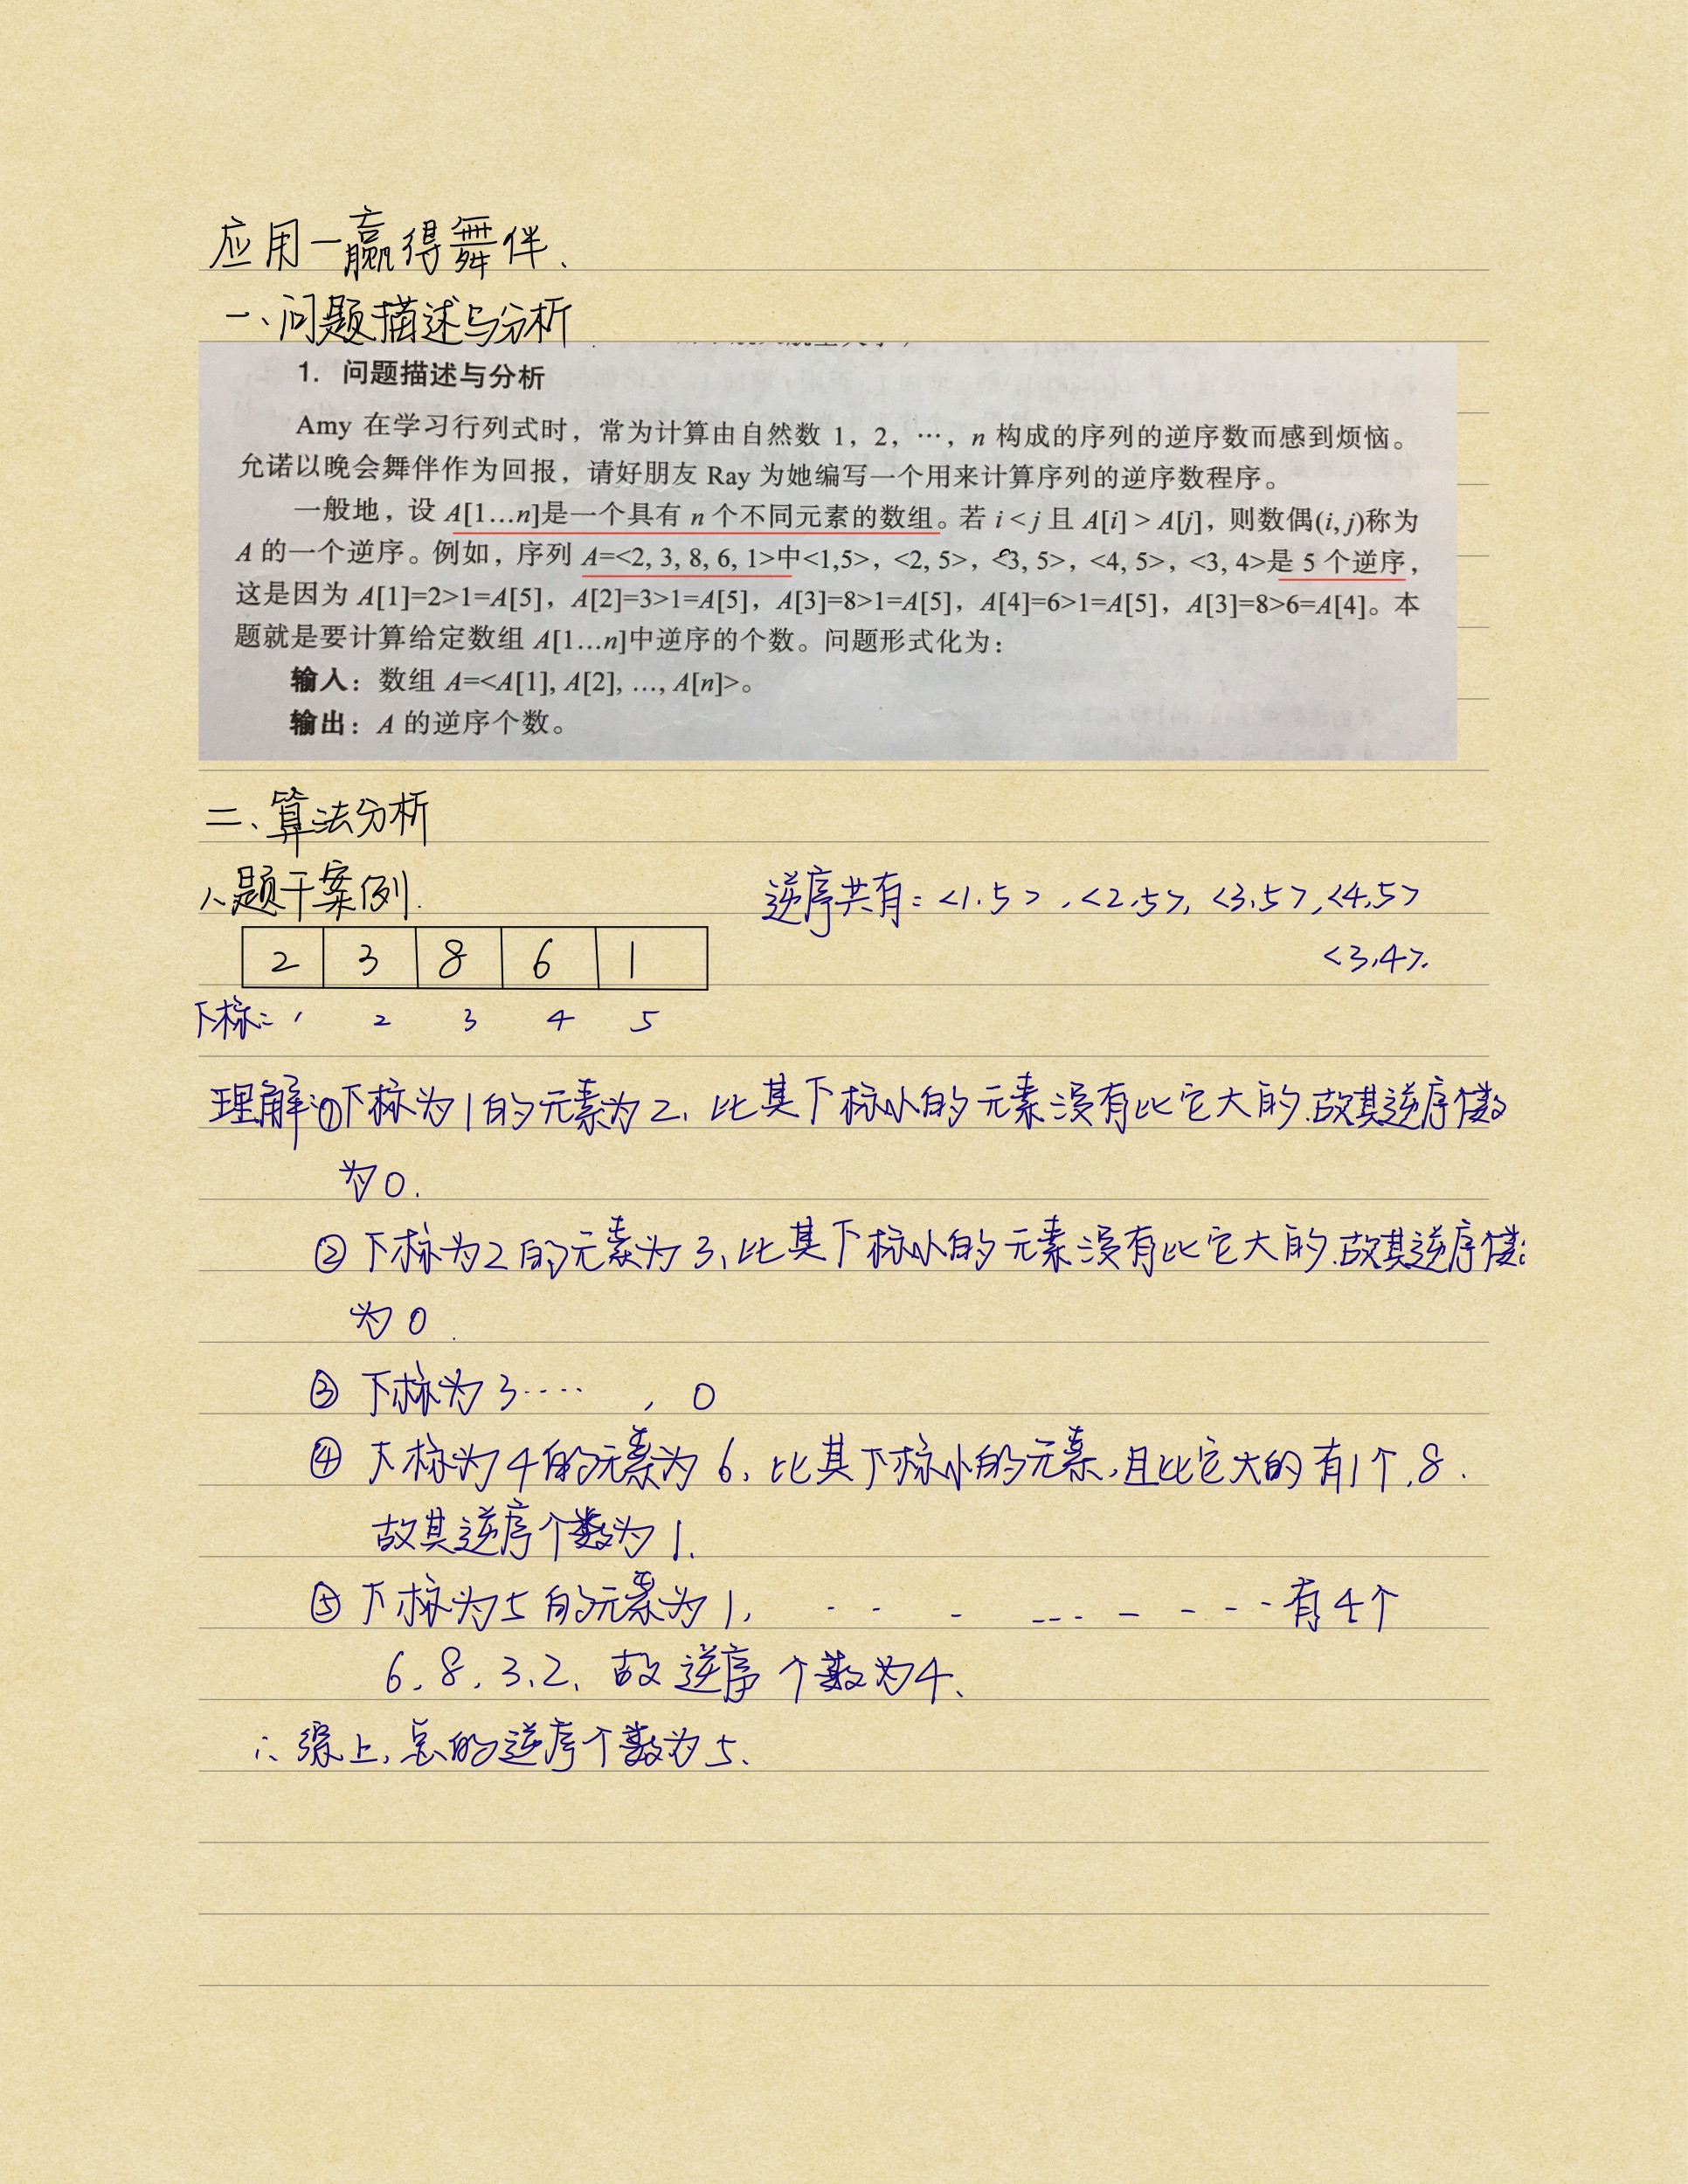 应用一赢得舞伴.
一、问题描述与分析
1. 问题描述与分析
Amy 在学习行列式时，常为计算由自然数 1，2，…，n 构成的序列的逆序数而感到烦恼。
允诺以晚会舞伴作为回报，请好朋友 Ray 为她编写一个用来计算序列的逆序数程序。
一般地，设 A[1…n]是一个具有 n 个不同元素的数组。若 i < j 且 A[i] > A[j]，则数偶(i, j)称为
A 的一个逆序。例如，序列 A=<2, 3, 8, 6, 1>中<1,5>，<2, 5>，<3, 5>，<4, 5>，<3, 4>是 5 个逆序，
这是因为 A[1]=2>1=A[5]，A[2]=3>1=A[5]，A[3]=8>1=A[5]，A[4]=6>1=A[5]，A[3]=8>6=A[4]。本
题就是要计算给定数组 A[1…n]中逆序的个数。问题形式化为：
输入：数组 A=<A[1], A[2], …, A[n]>。
输出：A 的逆序个数。
二、算法分析
1、题干案例.
逆序共有: <1.5>,<2.5>, <3.5>,<4.5>
<3,4>.
2 3 8 6 1
下标: 1 2 3 4 5
理解:①下标为1的元素为2, 比其下标小的元素没有比它大的.故其逆序个数
为0.
②下标为2的元素为3,比其下标小的元素没有比它大的.故其逆序个数
为0.
③ 下标为3····, 0
④ 下标为4的元素为6,比其下标小的元素,且比它大的有1个,8.
故其逆序个数为1.
⑤下标为5的元素为1, - - - --- - - - - -有4个
6.8.3.2. 故逆序个数为4、
∴综上,总的逆序个数为5、